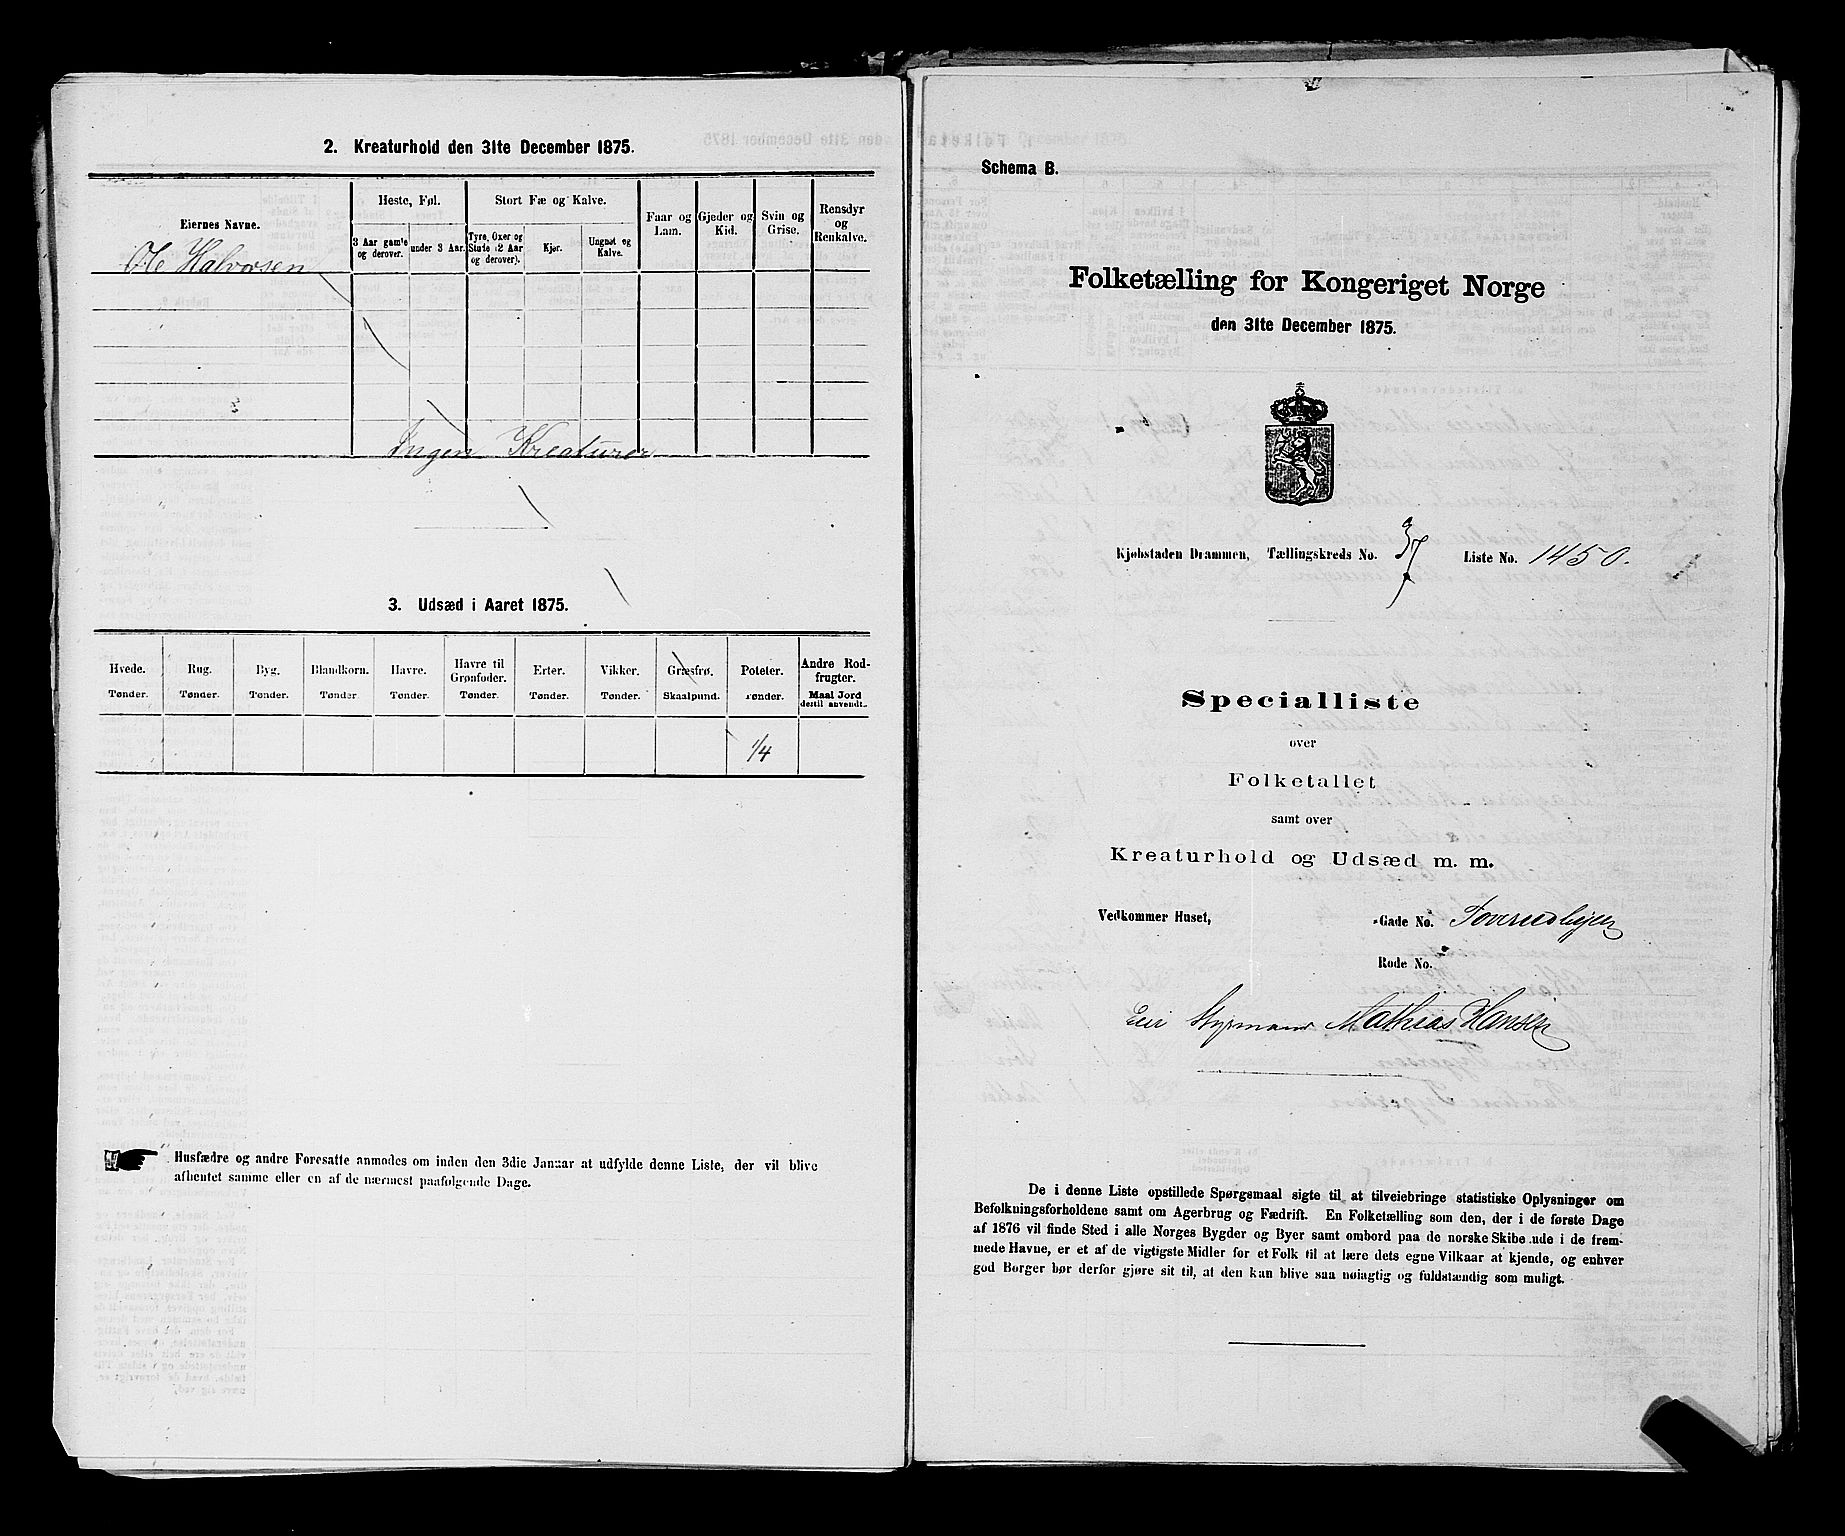 2. Kreaturhold den 31te December 1875.
Eiernes Navne.
Heste, Føl.
Stort Fæ og Kalve.
Faar og Lam.
Gjeder og Kid.
Svin og Grise.
Rensdyr og Renkalve.
3 Aar gamle og derover.
under 3 Aar.
Tyre, Oxer og Stude (2 Aar og derover).
Kjør.
Ungnøt og Kalve.
Ole Halvorsen
Ingen Kreaturer
3. Udsæd i Aaret 1875.
Hvede. Rug. Byg. Blandkorn. Havre. Havre til Grønfoder. Erter. Vikker. Græsfrø. Poteter. Andre Rodfrugter.
Tønder. Tønder. Tønder. Tønder. Tønder. Tønder. Tønder. Tønder. Skaalpund. Tønder. Maal Jord dertil anvendt.
1/4
Husfædre og andre Foresatte anmodes om inden den 3die Januar at udfylde denne Liste, der vil blive
afhentet samme eller en af de nærmest paafølgende Dage.
Schema B.
Folketælling for Kongeriget Norge
den 31te December 1875.
Kjøbstaden Drammen, Tællingskreds No. 37 Liste No. 1450.
Specialliste
over
Folketallet
samt over
Kreaturhold og Udsæd m. m.
Vedkommer Huset, Gade No.
Rode No.
Eier Styrmand Mathias Hansen
De i denne Liste opstillede Spørgsmaal sigte til at tilveiebringe statistiske Oplysninger om
Befolkningsforholdene samt om Agerbrug og Fædrift. En Folketælling som den, der i de første Dage
af 1876 vil finde Sted i alle Norges Bygder og Byer samt ombord paa de norske Skibe ude i de frem-
mede Havne, er et af de vigtigste Midler for et Folk til at lære dets egne Vilkaar at kjende, og enhver
god Borger bør derfor gjøre sit til, at den kan blive saa nøiagtig og fuldstændig som muligt.